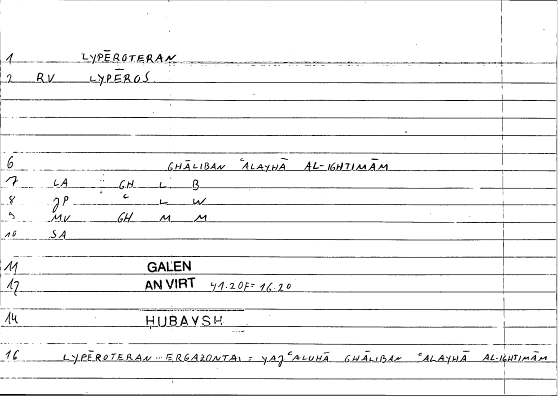 1 LYPĒROTERAN
2 RV LYPĒROS
6 GHĀLIBAN ʿALAYHĀ AL-IGHTIMĀM
7 LA GH L B
8 JP ʿ L W
9 MV GH M M
10 SA
11 GALEN
12 AN VIRT 41.20F = 16.20
14 HUBAYSH
16 LYPĒROTERAN ·· ERGAZONTAI = YAJʿALUHĀ GHĀLIBAN ʿALAYHĀ AL-IGHTIMĀM